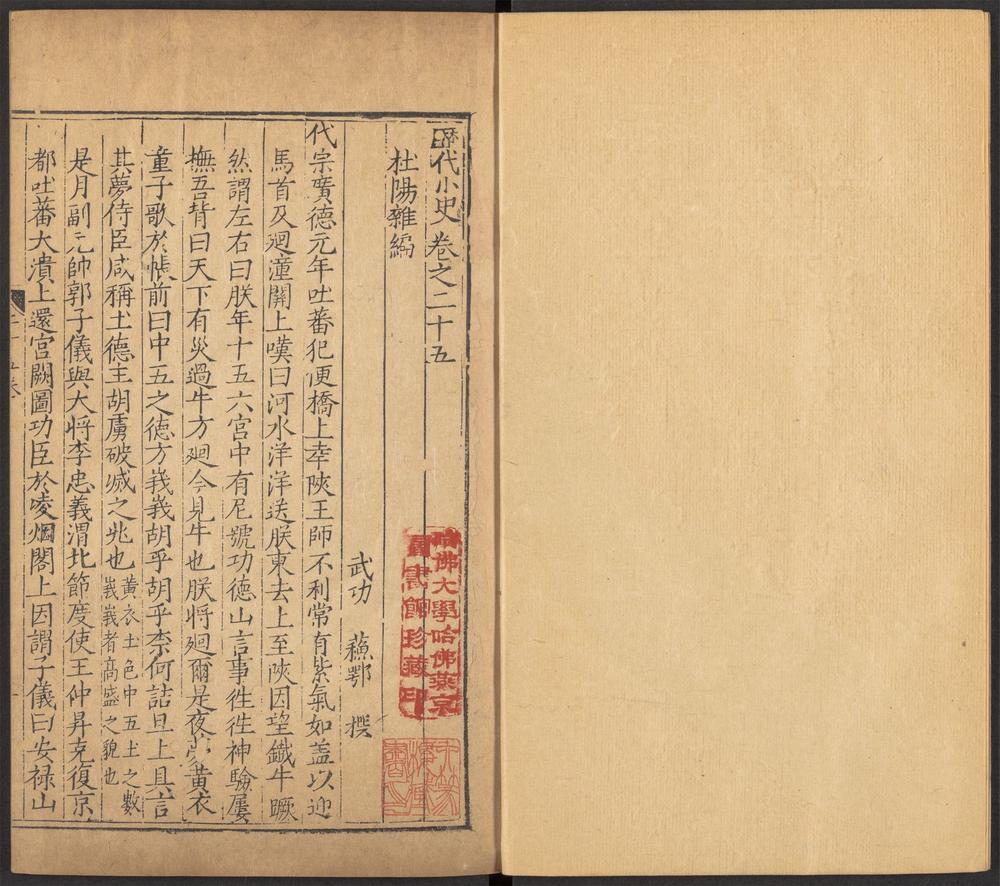 歷代小史卷之二十五
杜陽雜編
武功 蘇鄂 撰
代宗廣德元年吐蕃犯便橋上幸陝王師不利常有紫氣如盖以迎
馬首及廻潼關上嘆曰河水洋洋送朕東去上至陝因望鐵牛蹶
然謂左右曰朕年十五六宫中有尼號功德山言事徃徃神驗屢
撫吾背曰天下有災遇牛方廻今見牛也朕將廻爾是夜夢黃衣
童子歌於帳前曰中五之德方峩峩胡乎胡乎柰何詰旦上具言
其夢侍臣咸稱土德王胡虜破滅之兆也黃衣土色中五土之數
峩峩者高盛之貌也
是月副元帥郭子儀與大將李忠義渭北節度使王仲昇克復京
都吐蕃大潰上還宫闕圖功臣於凌烟閣上因謂子儀曰安禄山
哈佛大學哈佛燕京
圖書館珍藏印
二十五卷